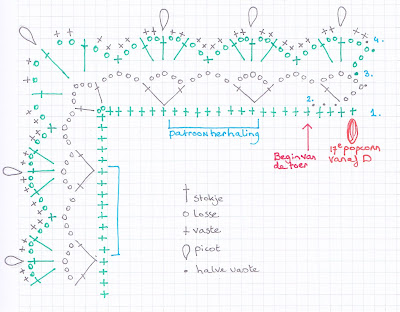 4.
3.
2.
1.
patroonherhaling
Begin van
de toer
17e popcorn
vanaf D
stokje
losse
vaste
picot
halve vaste